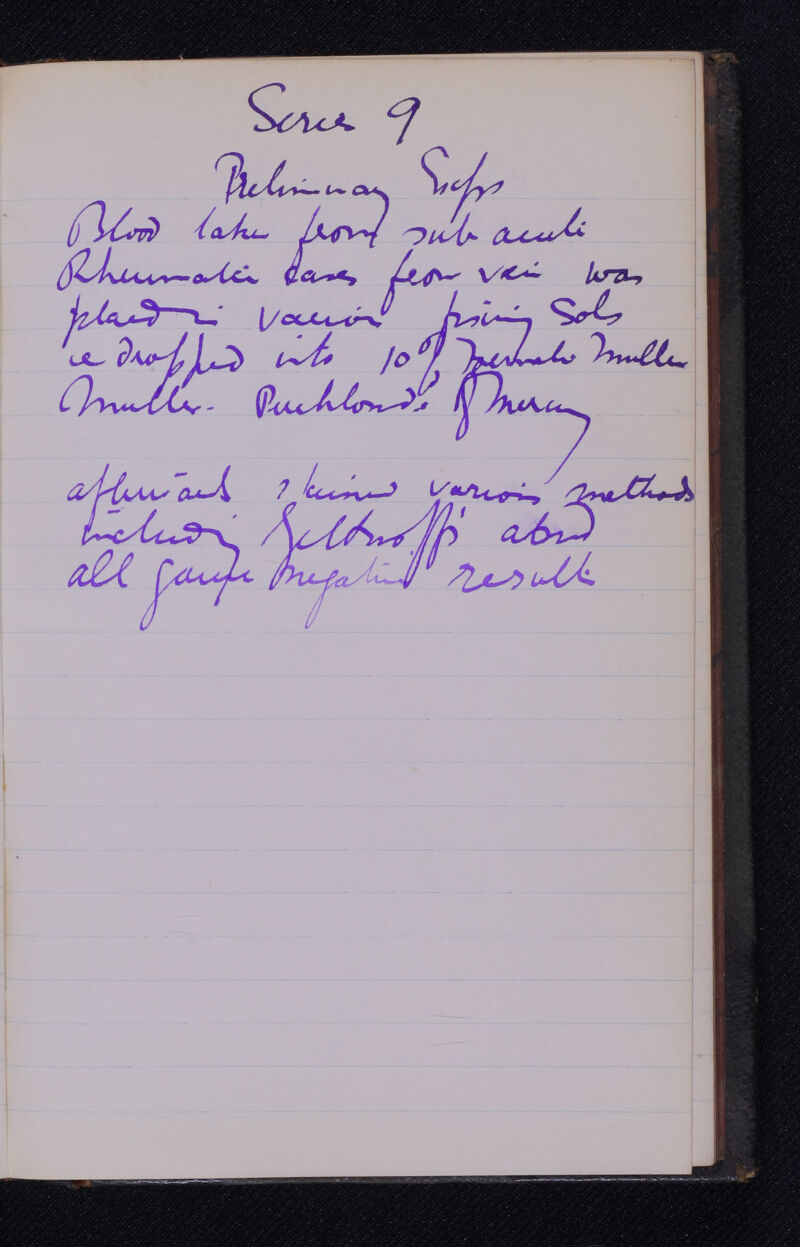 Series 9
Preliminary Exps
Blood taken from sub acute
Rheumatic cases from vein was
placed in various fixing Sols
ie dropped into 10% Muller
Muller - Perchloride of Mercury
afterwards stained various methods
including
all gave negative results